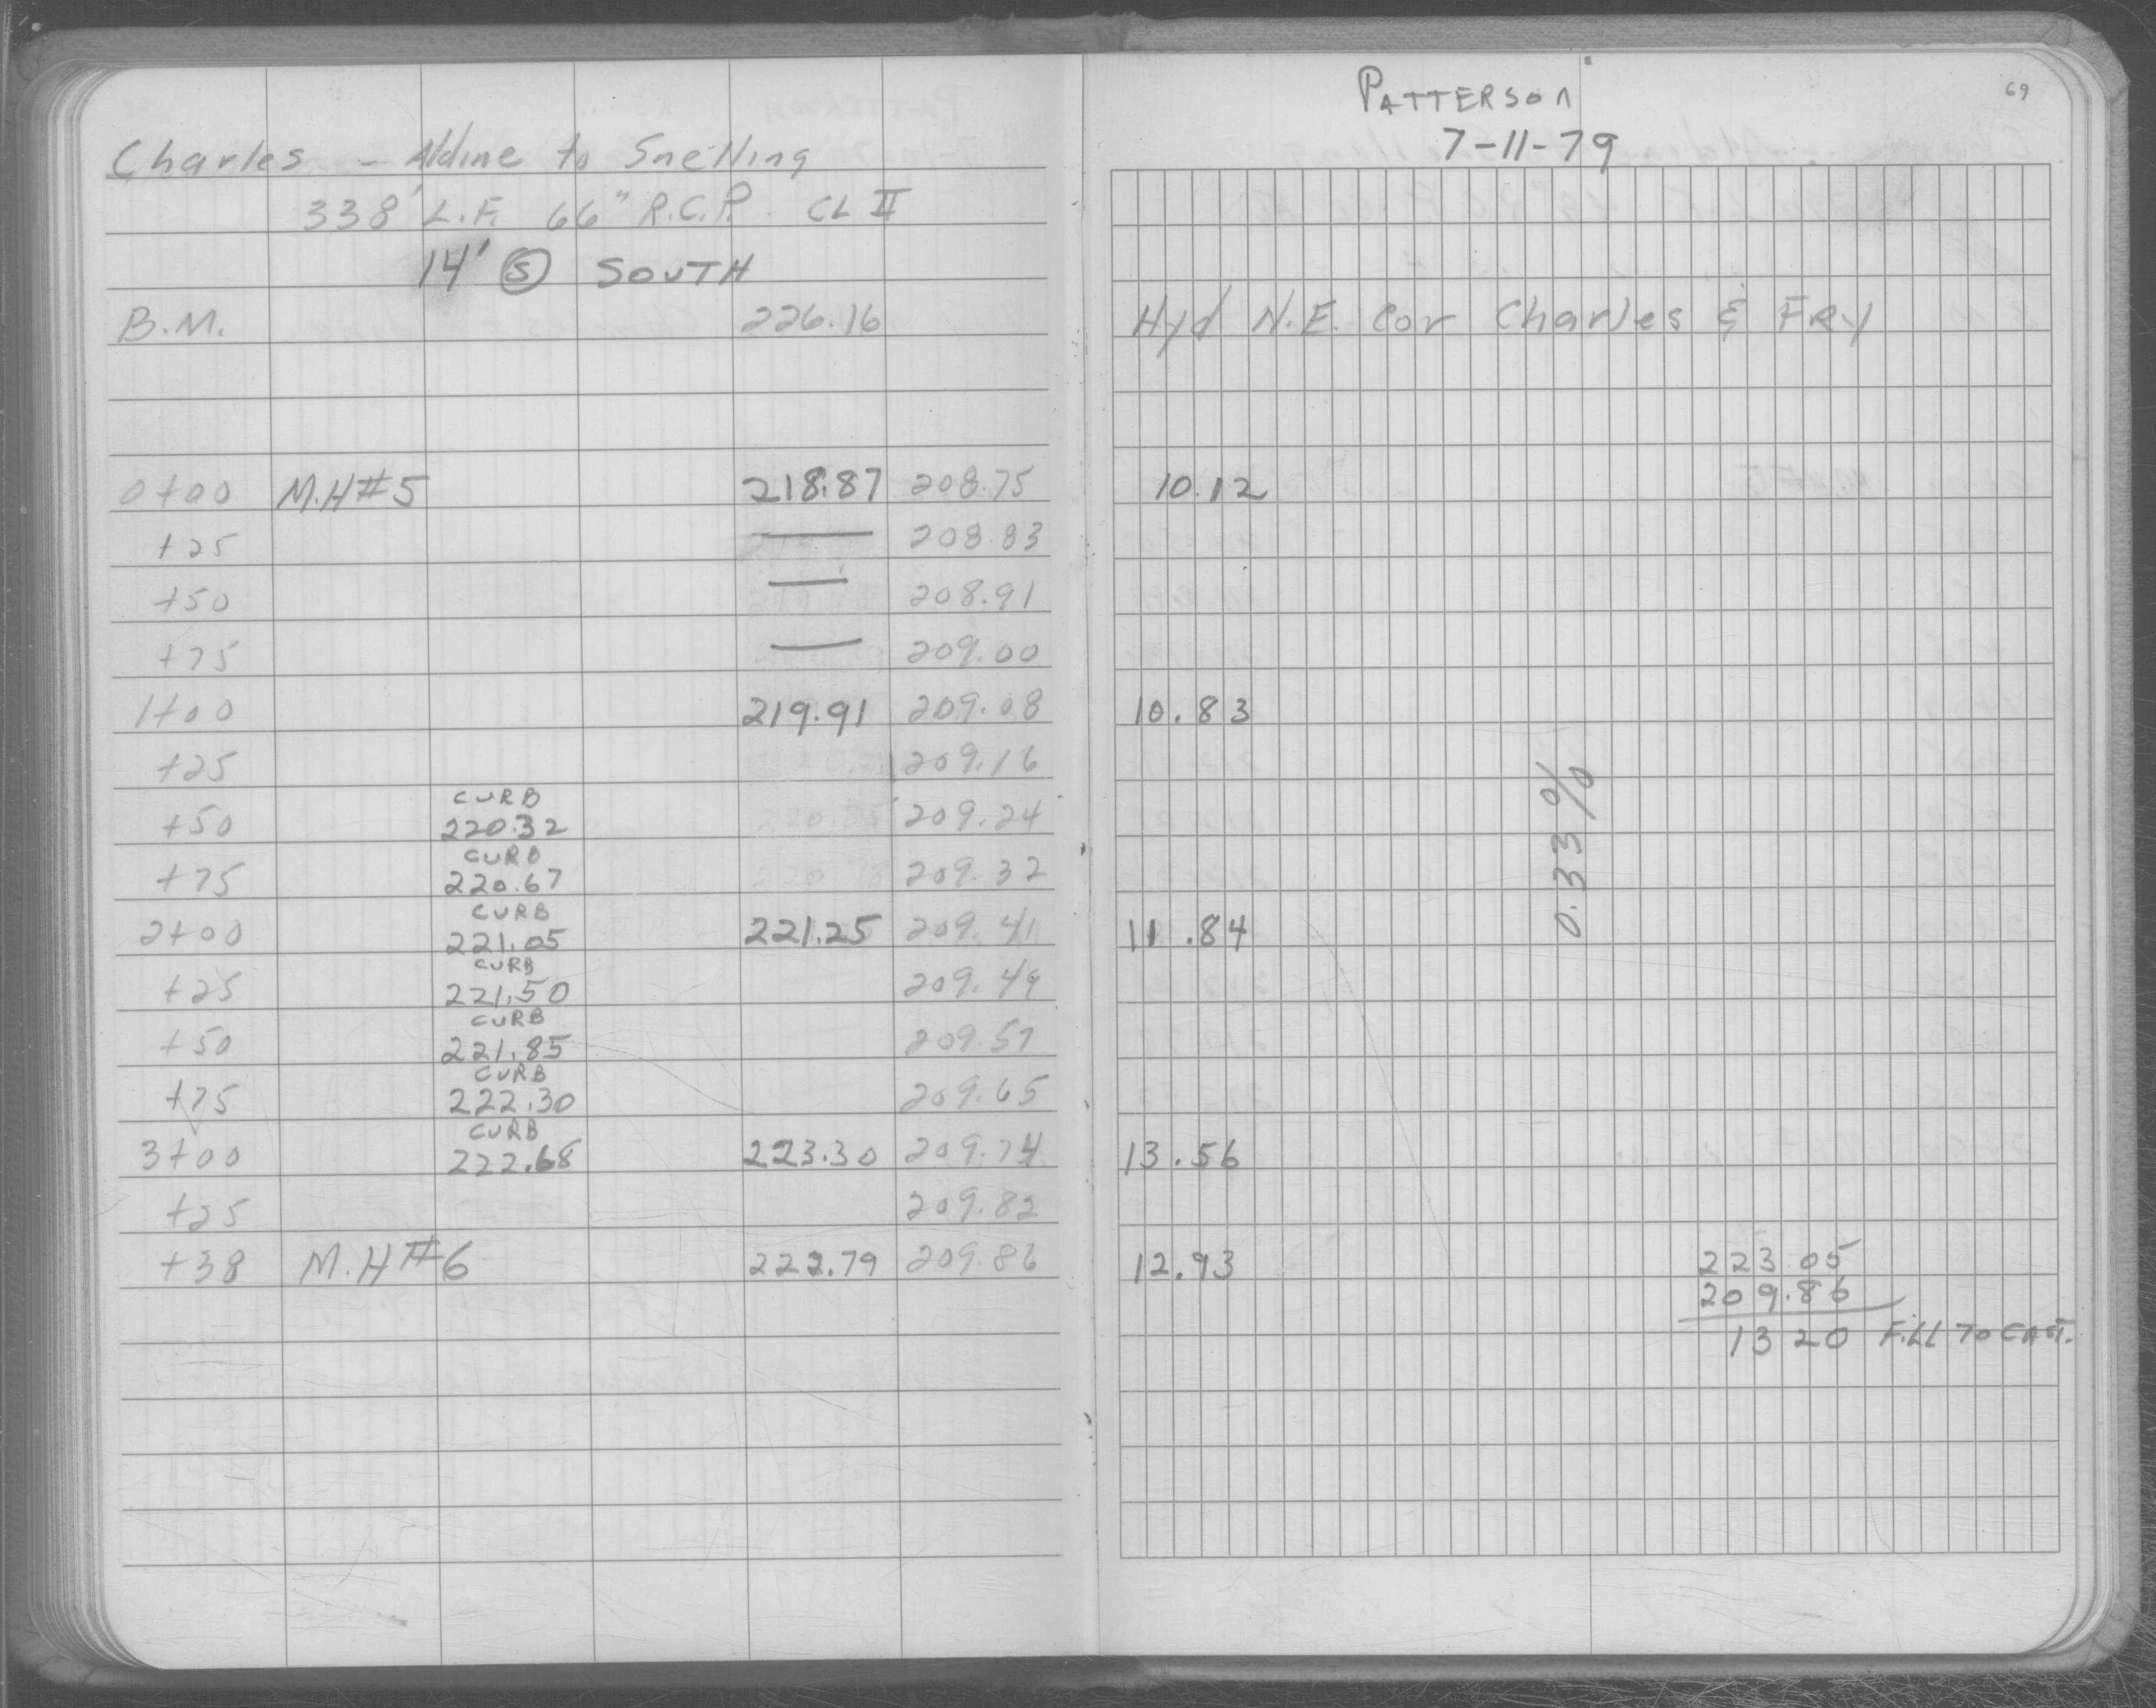 Charles - Aldine to Snelling
338' L.F. 66" R.C.P. CL II
14' Ⓢ SOUTH
B.M. 226.16
0+00 M.H#5 218.87 208.75
+25 — 208.83
+50 — 208.91
+75 — 209.00
1+00 219.91 209.08
+25 209.16
CURB
+50 220.32 209.24
CURB
+75 220.67 209.32
CURB
2+00 221.05 221.25 209.41
CURB
+25 221.50 209.49
CURB
+50 221.85 209.57
CURB
+75 222.30 209.65
CURB
3+00 222.68 223.30 209.74
+25 209.82
+38 M.H#6 222.79 209.86
PATTERSON
69
7-11-79
Hyd N.E. Cor Charles & FRY
10.12
10.83
0.33%
11.84
13.56
12.93
223.05
209.86
1320 FILL TO CAST.